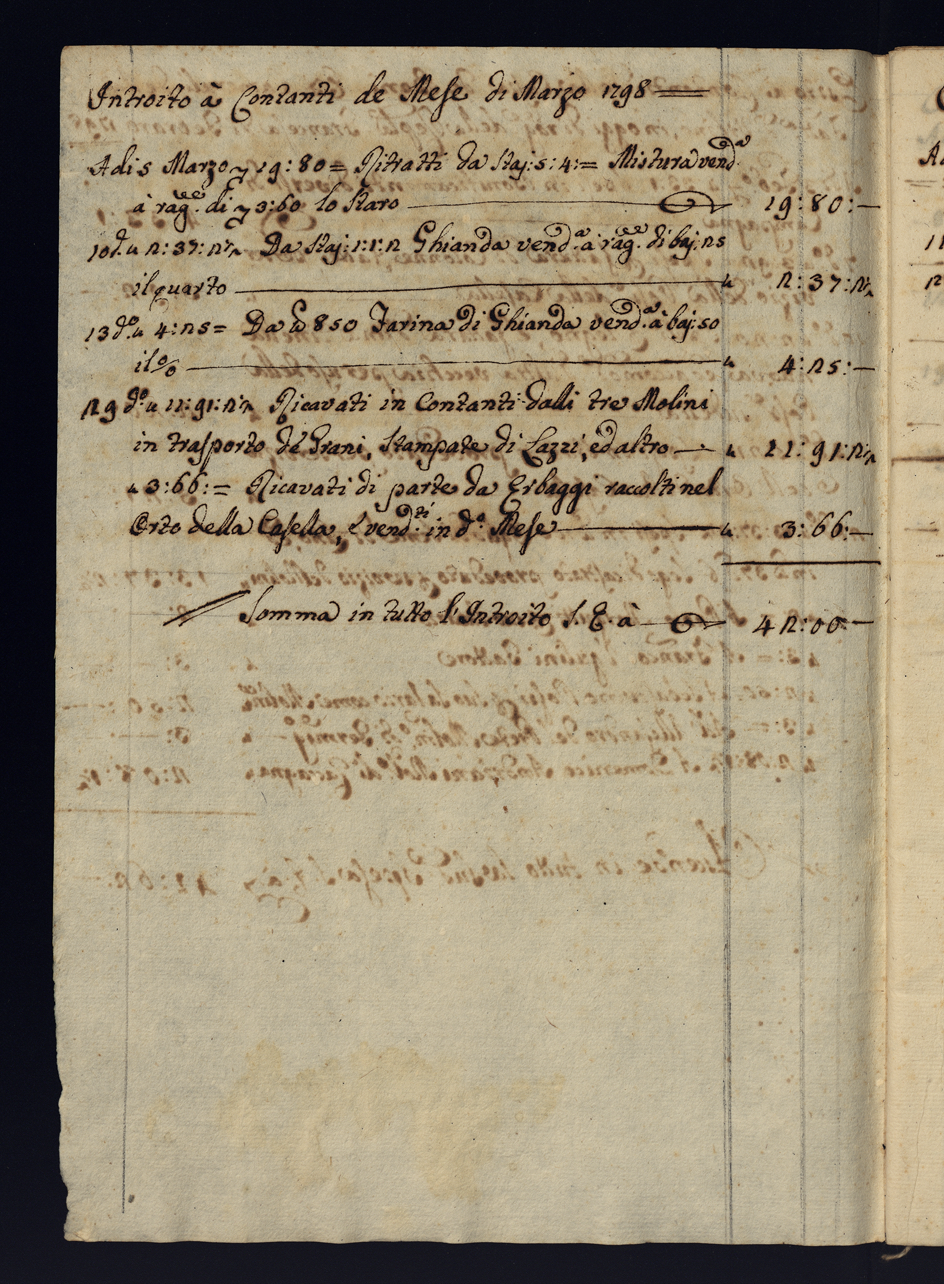 Introito à Contanti de Mese di Marzo 1798
Adi 5 Marzo 19:80= Ritratti da Staj: 5:4:= Mistura vend.a
à rag.ne di 3:60 lo Staro 19:80:—
10 d.o " 2:37:½ Da Staj: 1:1:2 Ghianda vend.a à rag.ne di baj: 25
il quarto " 2:37:½
13 d.o " 4:25= Da 850 Farina di Ghianda vend.a à baj: 50
il % " 4:25:—
29 d.o " 11:91:½ Ricavati in Contanti dalli tre Molini
in trasporto de Grani, Stampate di Lazzi, ed altro " 11:91:½
" 3:66:= Ricavati di parte da Erbaggi raccolti nel
Orto della Casella, e vend.ti in d.o Mese " 3:66:—
Somma in tutto l'Introito S. E. à 42:00:—